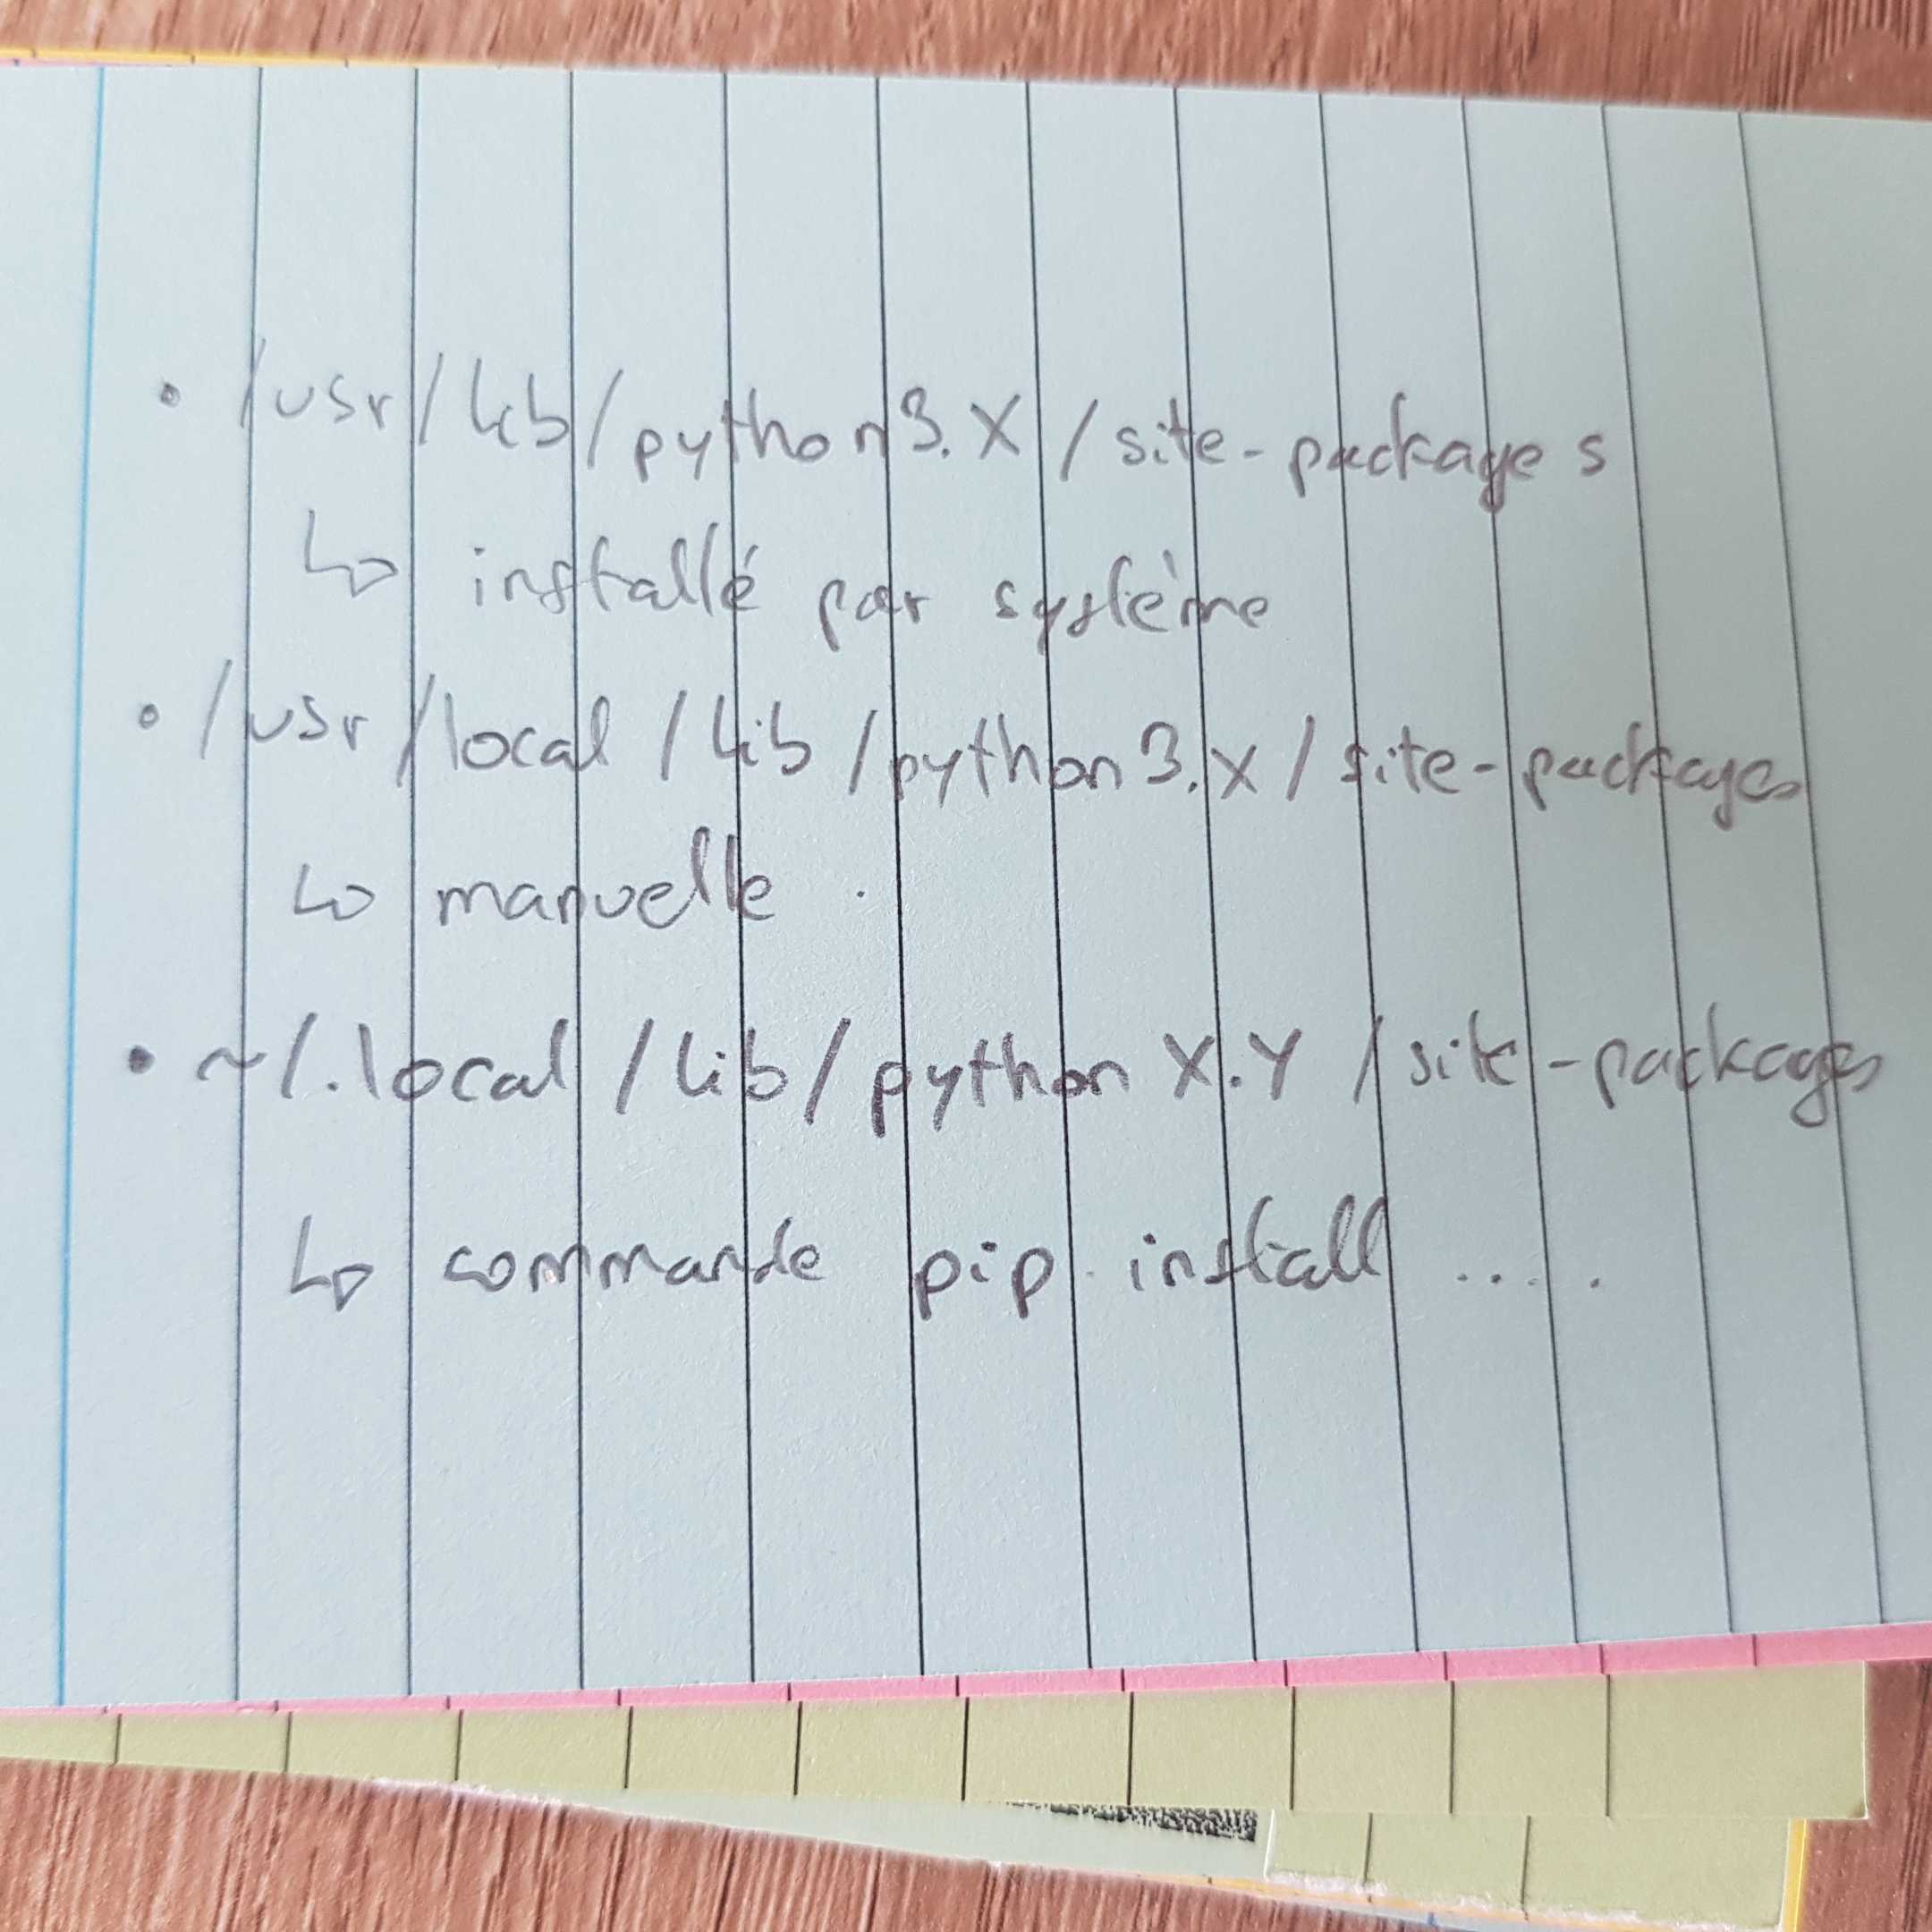 • /usr/lib/python3.X/site-packages
↳ installé par système
• /usr/local/lib/python3.X/site-packages
↳ manuelle
• ~/.local/lib/pythonX.Y/site-packages
↳ commande pip install .....